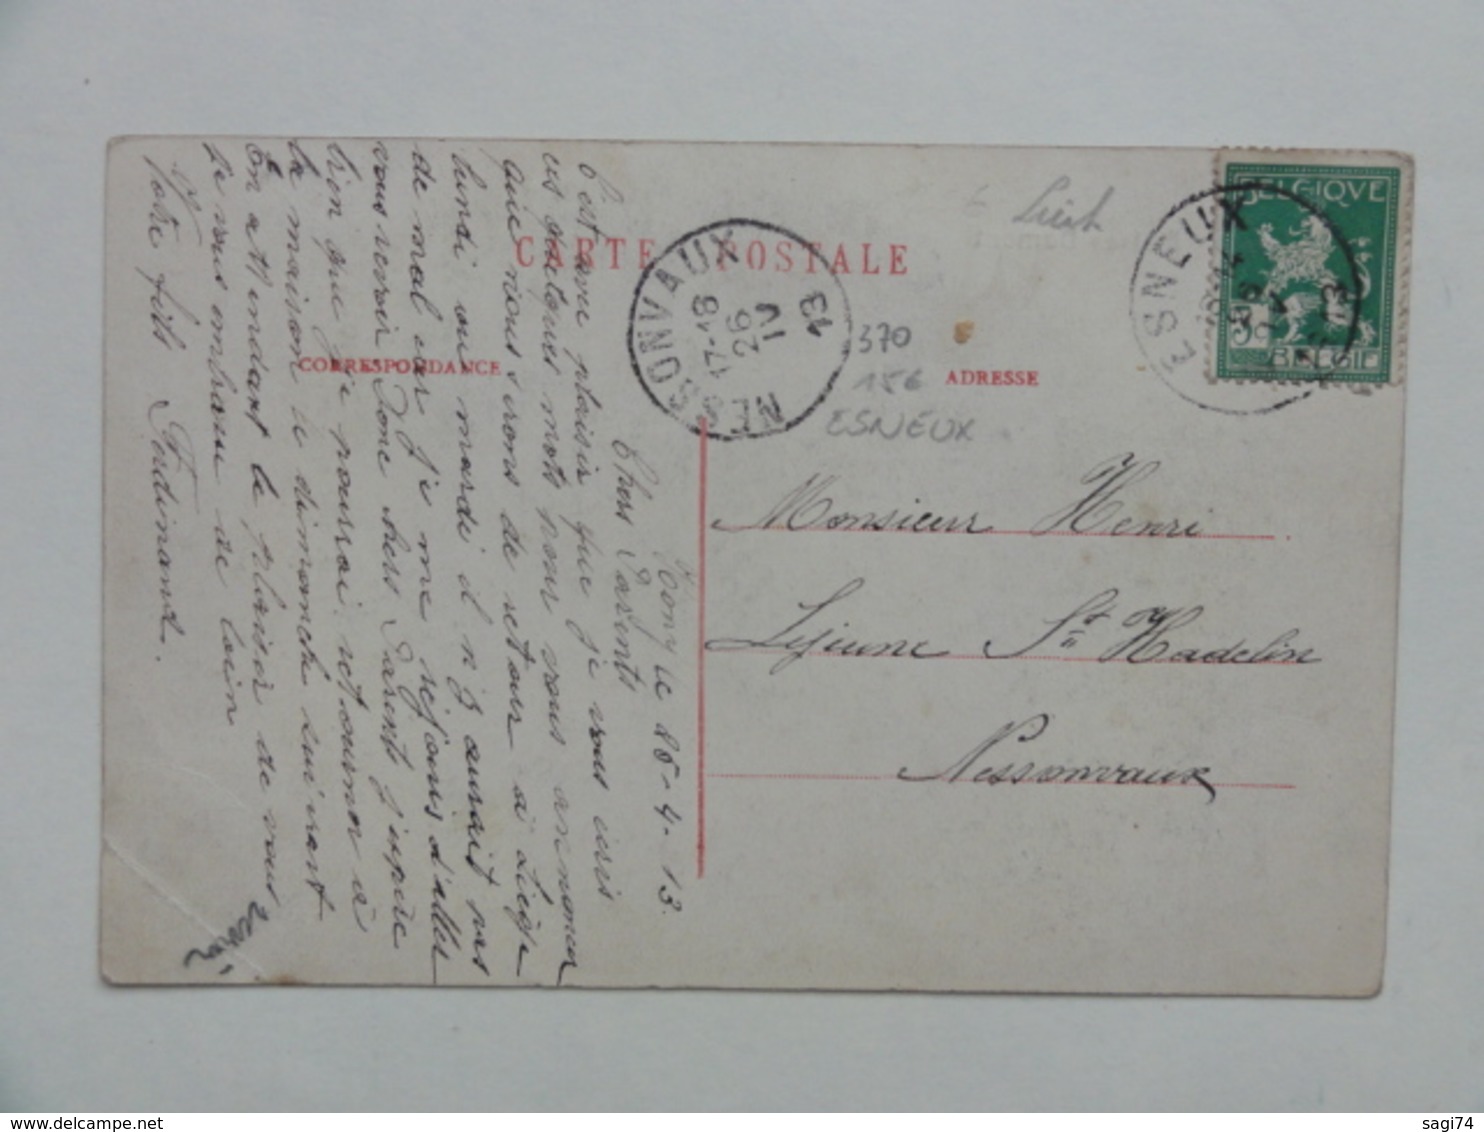 CARTE POSTALE
CORRESPONDANCE
ADRESSE
BELGIQUE
BELGIË
5c
ESNEUX
NESSONVAUX
17-18
26
IV
13
370
156
ESNEUX
Monsieur Henri
Lejeune St Hadelin
Nessonvaux
le 26-4-13
Chers Parents
C'est avec plaisir que je vous ecris
ces quelques mots pour vous annoncer
que nous serons de retour à Liége
lundi ou mardi il n'y aurait pas
de mal car je me rejouis d'aller
vous revoir Donc chers Parents j'espère
bien que je pourrai retourner à
la maison le dimanche suivant
En attendant le plaisir de vous
De vous embrasser de loin
Votre fils Ferdinand.
sagi74